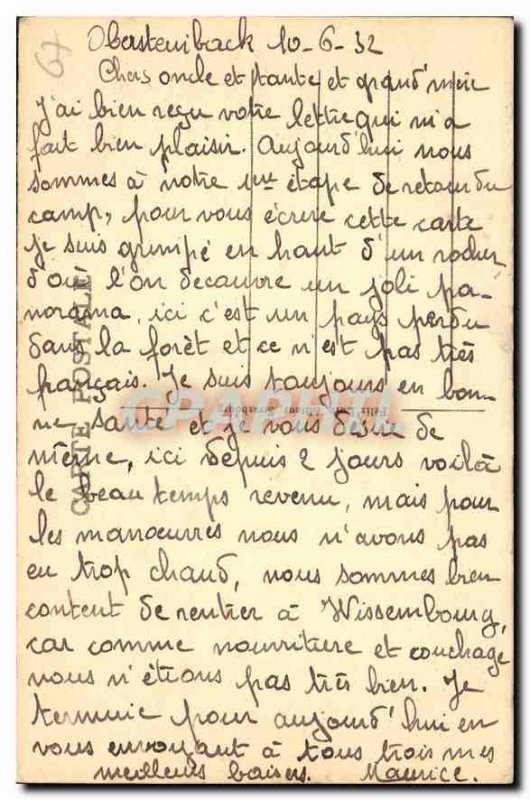 Obersteinback 10-6-32
Chers oncle et tante et grand'mère
j'ai bien reçu votre lettre qui m'a
fait bien plaisir. Aujourd'hui nous
sommes à notre 1ère étape de retour du
camp, pour vous écrire cette carte
je suis grimpé en haut d'un rocher
d'où l'on decouvre un joli pa-
norama, ici c'est un pays perdu
dans la forêt et ce n'est pas très
français. Je suis toujours en bon-
ne santé et je vous désire de
même, ici depuis 2 jours voilà
le beau temps revenu, mais pour
les manœuvres nous n'avons pas
eu trop chaud, nous sommes bien
content de rentrer à Wissembourg,
car comme nourriture et couchage
nous n'étions pas très bien. Je
termine pour aujourd'hui en
vous envoyant à tous trois mes
meilleurs baisers. Maurice.
CARTE POSTALE
67